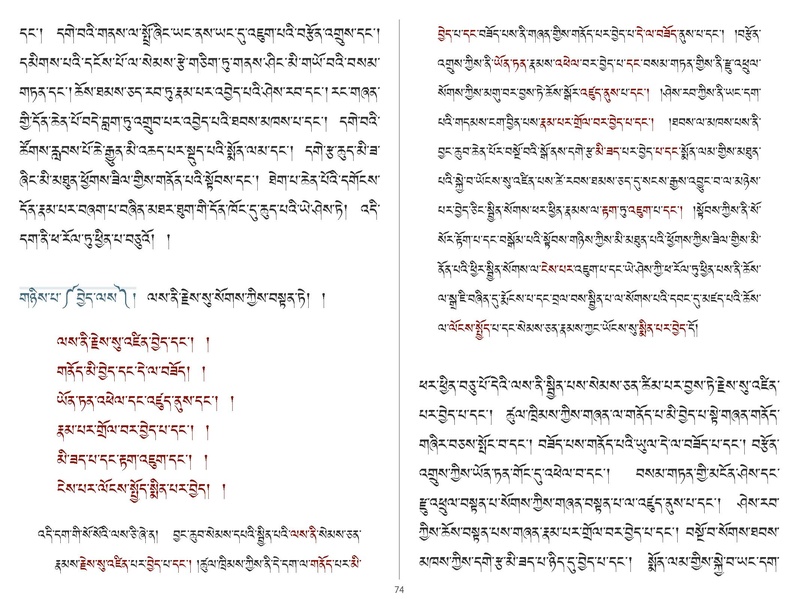 དང་། དགེ་བའི་གནས་ལ་སྤྲོ་ཞིང་ཡང་ནས་ཡང་དུ་འཇུག་པའི་བརྩོན་འགྲུས་དང་།
དམིགས་པའི་དངོས་པོ་ལ་སེམས་རྩེ་གཅིག་ཏུ་གནས་ཤིང་མི་གཡོ་བའི་བསམ་
གཏན་དང་། ཆོས་ཐམས་ཅད་རབ་ཏུ་རྣམ་པར་འབྱེད་པའི་ཤེས་རབ་དང་། རང་གཞན་
གྱི་དོན་ཆེན་པོ་བདེ་བླག་ཏུ་འགྲུབ་པར་འབྱེད་པའི་ཐབས་མཁས་པ་དང་། དགེ་བའི་
ཚོགས་རླབས་པོ་ཆེ་རྒྱུན་མི་འཆད་པར་སྡུད་པའི་སྨོན་ལམ་དང་། དགེ་རྩ་ཆུད་མི་ཟ་
ཞིང་མི་མཐུན་ཕྱོགས་ཟིལ་གྱིས་གནོན་པའི་སྟོབས་དང་། ཐེག་པ་ཆེན་པོའི་དགོངས་
དོན་རྣམ་པར་བཞག་པ་བཞིན་མཐར་ཐུག་གི་དོན་ཁོང་དུ་ཆུད་པའི་ཡེ་ཤེས་ཏེ། འདི་
དག་ནི་ཕ་རོལ་ཏུ་ཕྱིན་པ་བཅུའོ། །
གཉིས་པ་༼བྱེད་ལས༽། ལས་ནི་རྗེས་སུ་སོགས་ཀྱིས་བསྟན་ཏེ། །
ལས་ནི་རྗེས་སུ་འཛིན་བྱེད་དང་། །
གནོད་མི་བྱེད་དང་དེ་ལ་བཟོད། །
ཡོན་ཏན་འཕེལ་དང་འཛུད་ནུས་དང་། །
རྣམ་པར་གྲོལ་བར་བྱེད་པ་དང་། །
མི་ཟད་པ་དང་རྟག་འཇུག་དང་། །
ངེས་པར་ལོངས་སྤྱོད་སྨིན་པར་བྱེད། །
འདི་དག་གི་སོ་སོའི་ལས་ཅི་ཞེ་ན། བྱང་ཆུབ་སེམས་དཔའི་སྦྱིན་པའི་ལས་ནི་སེམས་ཅན་
རྣམས་རྗེས་སུ་འཛིན་པར་བྱེད་པ་དང་། །ཚུལ་ཁྲིམས་ཀྱི་ནི་དེ་དག་ལ་གནོད་པར་མི་
བྱེད་པ་དང་བཟོད་པས་ནི་གཞན་གྱིས་གནོད་པར་བྱེད་པ་དེ་ལ་བཟོད་ནུས་པ་དང་། །བརྩོན་
འགྲུས་ཀྱིས་ནི་ཡོན་ཏན་རྣམས་འཕེལ་བར་བྱེད་པ་དང་བསམ་གཏན་གྱིས་ནི་རྫུ་འཕྲུལ་
སོགས་ཀྱིས་མགུ་བར་བྱས་ཏེ་ཆོས་སྒོར་འཛུད་ནུས་པ་དང་། །ཤེས་རབ་ཀྱི་ནི་ཡང་དག་
པའི་གདམས་ངག་བྱིན་པས་རྣམ་པར་གྲོལ་བར་བྱེད་པ་དང་། །ཐབས་ལ་མཁས་པས་ནི་
བྱང་ཆུབ་ཆེན་པོར་བསྔོ་བའི་སྒོ་ནས་དགེ་རྩ་མི་ཟད་པར་བྱེད་པ་དང་སྨོན་ལམ་གྱིས་མཐུན་
པའི་སྐྱེ་བ་ཡོངས་སུ་འཛིན་པས་ཚེ་རབས་ཐམས་ཅད་དུ་སངས་རྒྱས་འབྱུང་བ་ལ་མཉེས་
པར་བྱེད་ཅིང་སྦྱིན་སོགས་ཕར་ཕྱིན་རྣམས་ལ་རྟག་ཏུ་འཇུག་པ་དང་། །སྟོབས་ཀྱིས་ནི་སོ་
སོར་རྟོག་པ་དང་བསྒོམ་པའི་སྟོབས་གཉིས་ཀྱིས་མི་མཐུན་པའི་ཕྱོགས་ཀྱིས་ཟིལ་གྱིས་མི་
ནོན་པའི་ཕྱིར་སྦྱིན་སོགས་ལ་ངེས་པར་འཇུག་པ་དང་ཡེ་ཤེས་ཀྱི་ཕ་རོལ་ཏུ་ཕྱིན་པས་ནི་ཆོས་
ལ་སྒྲ་ཇི་བཞིན་དུ་རྨོངས་པ་དང་བྲལ་བས་སྦྱིན་པ་ལ་སོགས་པའི་དབང་དུ་མཛད་པའི་ཆོས་
ལ་ལོངས་སྤྱོད་པ་དང་སེམས་ཅན་རྣམས་ཀྱང་ཡོངས་སུ་སྨིན་པར་བྱེད་དོ།
ཕར་ཕྱིན་བཅུ་པོ་དེའི་ལས་ནི་སྦྱིན་པས་སེམས་ཅན་ཚིམ་པར་བྱས་ཏེ་རྗེས་སུ་འཛིན་
པར་བྱེད་པ་དང་། ཚུལ་ཁྲིམས་ཀྱིས་གཞན་ལ་གནོད་པ་མི་བྱེད་པ་སྟེ་གཞན་གནོད་
གཞིར་བཅས་སྤོང་བ་དང་། བཟོད་པས་གནོད་པའི་ཡུལ་དེ་ལ་བཟོད་པ་དང་། བརྩོན་
འགྲུས་ཀྱིས་ཡོན་ཏན་གོང་དུ་འཕེལ་བ་དང་། བསམ་གཏན་གྱི་མངོན་ཤེས་དང་
རྫུ་འཕྲུལ་བསྟན་པ་སོགས་ཀྱིས་གཞན་བསྟན་པ་ལ་འཛུད་ནུས་པ་དང་། ཤེས་རབ་
ཀྱིས་ཆོས་བསྟན་པས་གཞན་རྣམ་པར་གྲོལ་བར་བྱེད་པ་དང་། བསྔོ་བ་སོགས་ཐབས་
མཁས་ཀྱིས་དགེ་རྩ་མི་ཟད་པ་ཉིད་དུ་བྱེད་པ་དང་། སྨོན་ལམ་གྱིས་སྐྱེ་བ་ཡང་དག་
74